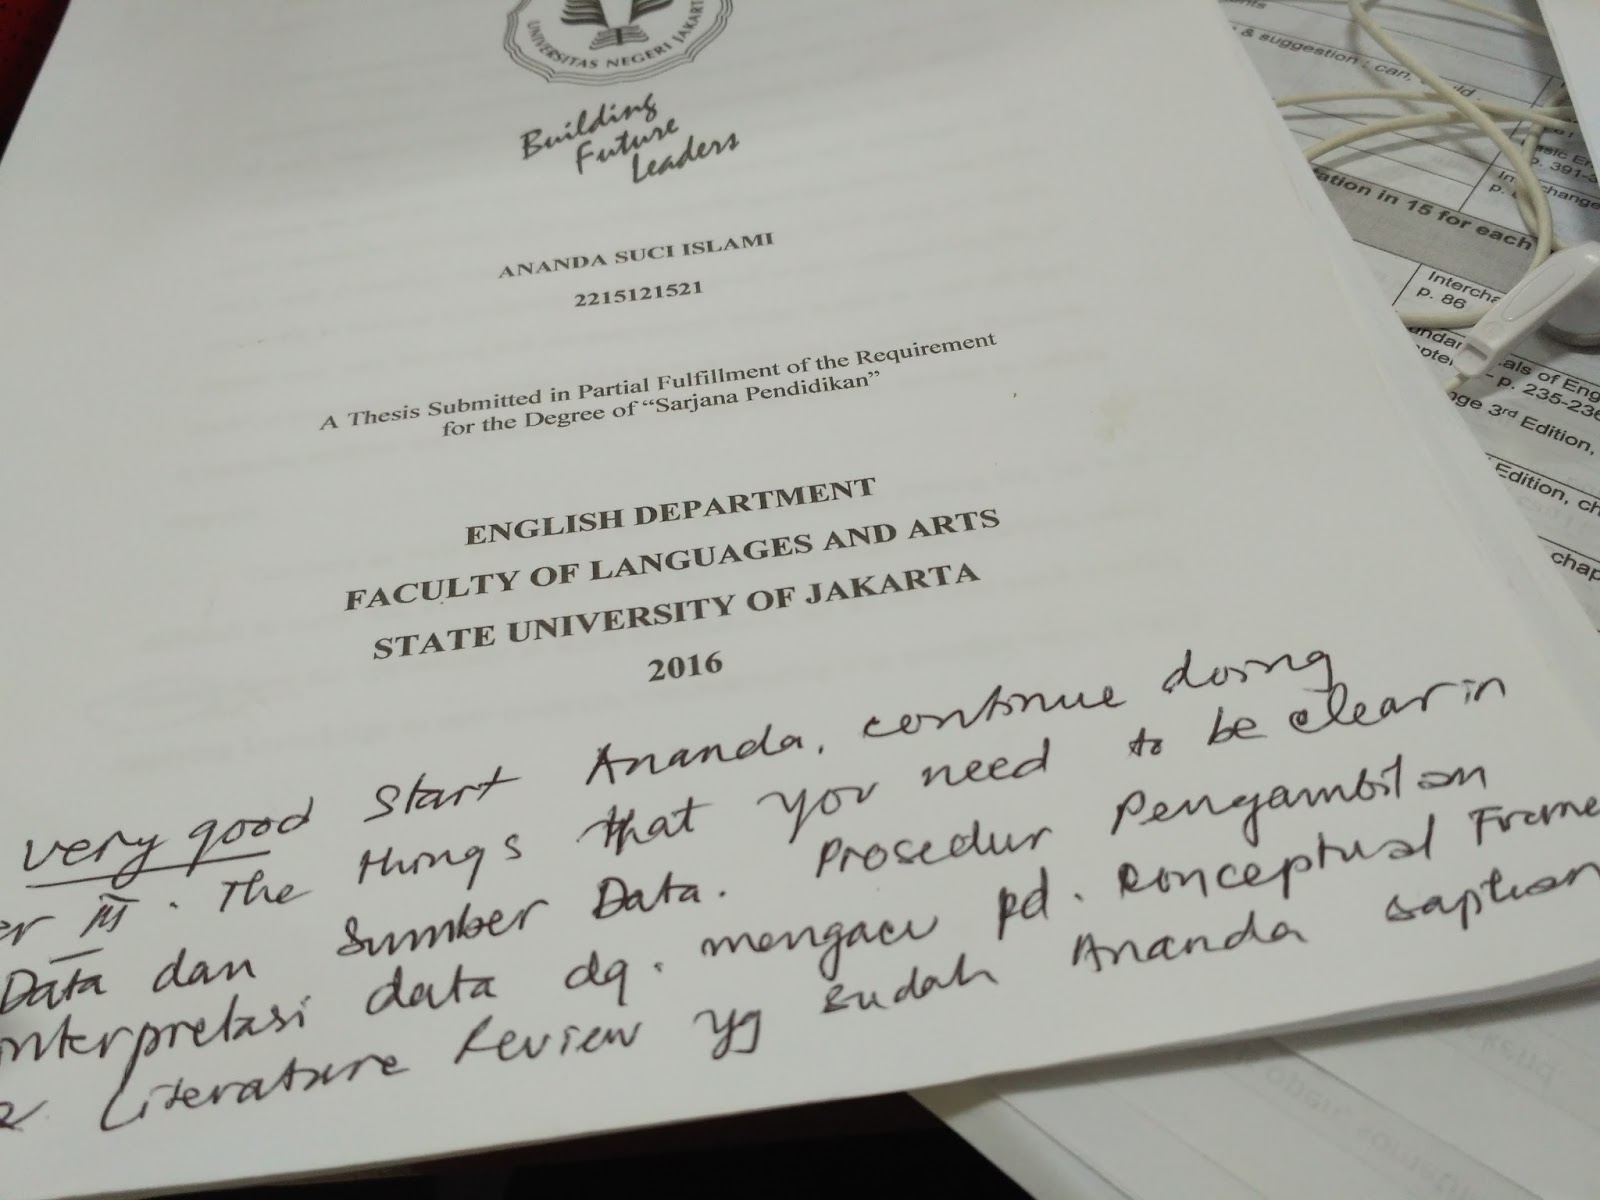 UNIVERSITAS NEGERI JAKARTA
Building
Future
Leaders
ANANDA SUCI ISLAMI
2215121521
A Thesis Submitted in Partial Fulfillment of the Requirement
for the Degree of “Sarjana Pendidikan”
ENGLISH DEPARTMENT
FACULTY OF LANGUAGES AND ARTS
STATE UNIVERSITY OF JAKARTA
2016
very good start Ananda, continue doing
er III. The things that you need to be clear in
Data dan Sumber Data. Prosedur Pengambilan
interpretasi data dg. mengacu pd. Konceptual Frame
Literature Review yg sudah Ananda siapkan
& suggestion : can,
p. 391-3
Interchange
p.
tation in 15 for each
Intercha
p. 86
als of Eng
p. 235-236
nge 3rd Edition,
Edition, ch
chap